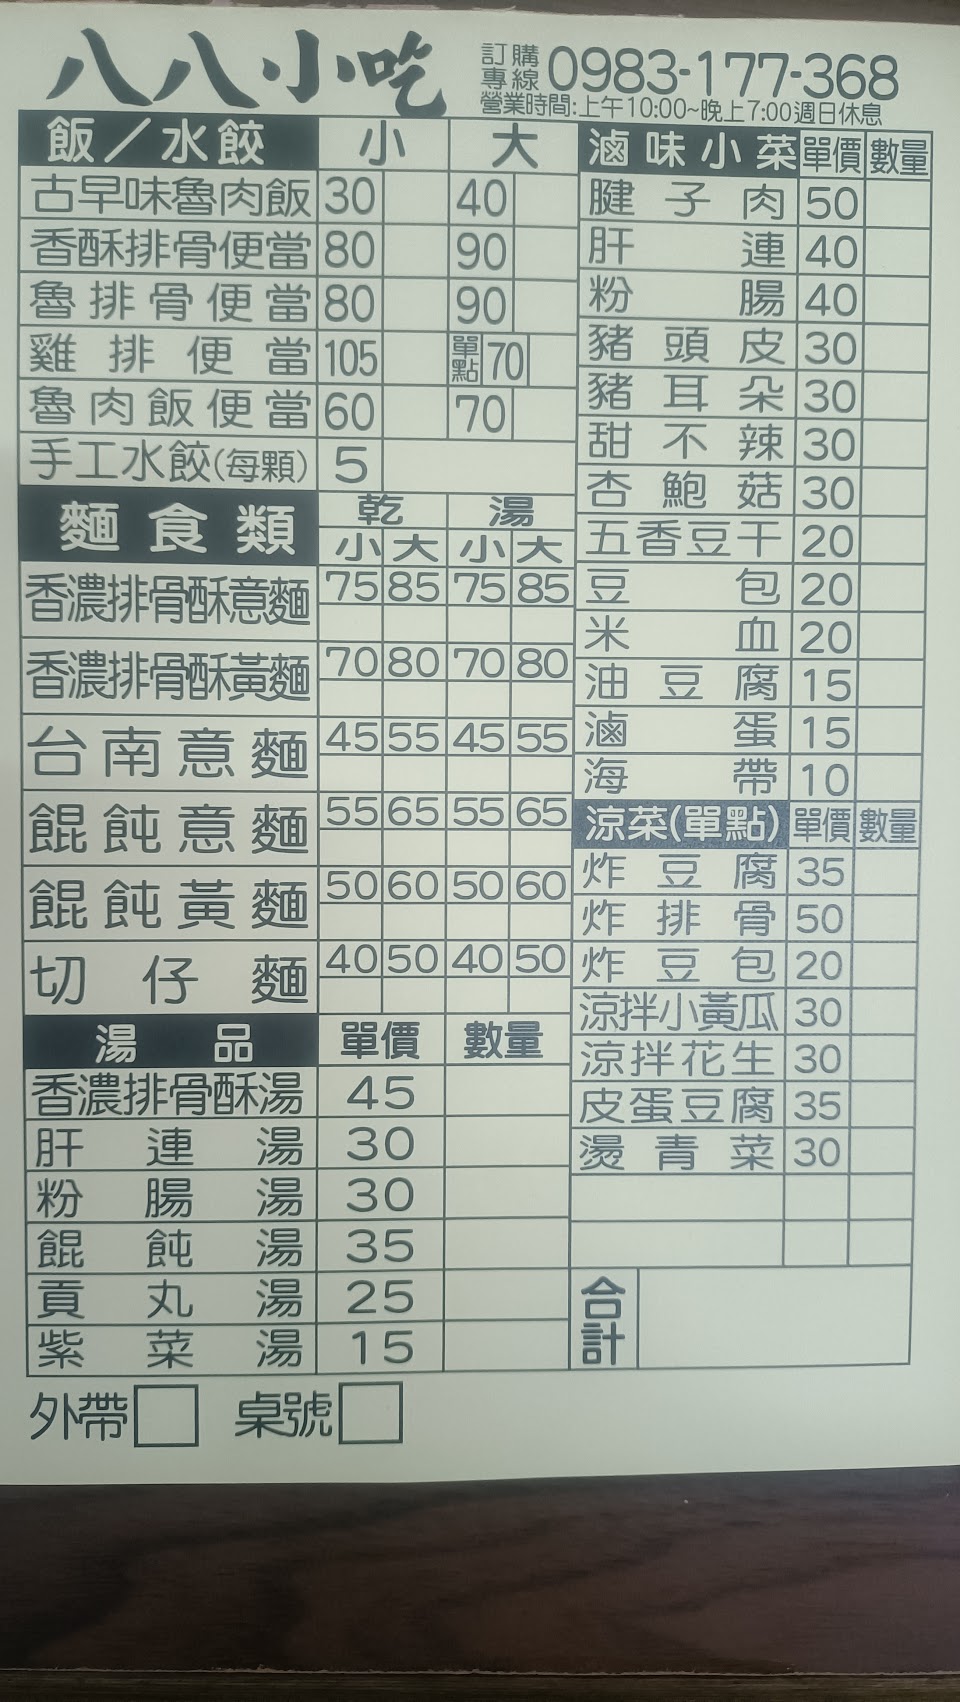 八八小吃
訂購專線 0983-177-368
營業時間:上午10:00~晚上7:00週日休息
飯／水餃 小 大
古早味魯肉飯 30 40
香酥排骨便當 80 90
魯排骨便當 80 90
雞排便當 105 單點 70
魯肉飯便當 60 70
手工水餃(每顆) 5
麵食類 乾 湯
小 大 小 大
香濃排骨酥意麵 75 85 75 85
香濃排骨酥黃麵 70 80 70 80
台南意麵 45 55 45 55
餛飩意麵 55 65 55 65
餛飩黃麵 50 60 50 60
切仔麵 40 50 40 50
湯品 單價 數量
香濃排骨酥湯 45
肝連湯 30
粉腸湯 30
餛飩湯 35
貢丸湯 25
紫菜湯 15
滷味小菜 單價 數量
腱子肉 50
肝連 40
粉腸 40
豬頭皮 30
豬耳朵 30
甜不辣 30
杏鮑菇 30
五香豆干 20
豆包 20
米血 20
油豆腐 15
滷蛋 15
海帶 10
涼菜(單點) 單價 數量
炸豆腐 35
炸排骨 50
炸豆包 20
涼拌小黃瓜 30
涼拌花生 30
皮蛋豆腐 35
燙青菜 30
合計
外帶 桌號